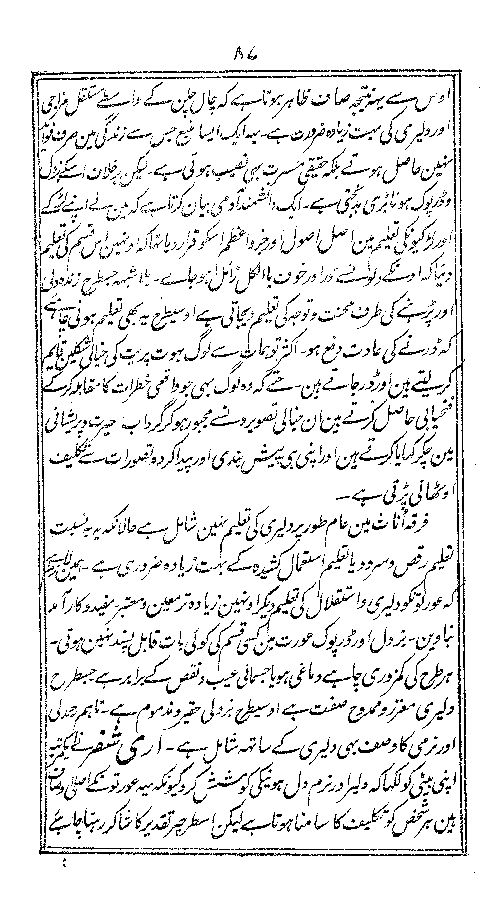 ۸۶
اوس سے یہہ نتیجہ صاف ظاہر ہوتا ہے کہ چال چلن کے واسطے مستقل مزاجی
اور دلیری کی بہت زیادہ ضرورت ہے۔ یہ ایک ایسا منبع جس سے زندگی مین صرف فوائد
نہین حاصل ہوتے بلکہ حقیقی مسرت بہی نصیب ہوتی ہے۔ لیکن برخلاف اسکے بزدل
و ڈرپوک ہونا بڑی بدبختی ہے۔ ایک دانشمند آدمی بیان کرتا ہے کہ مین نے اپنے لڑکے
اور لڑکیونکی تعلیم مین اصل اصول اور جزو اعظم اسکو قرار دیا تہا کہ اونہین اس قسم کی تعلیم
دیجائے کہ اونکے دلونسے ڈر اور خوف بالکل زائل ہوجاے۔ بلاشبہہ جسطرح زندہ دلی
اور پڑہنے کی طرف محنت و توجہ کی تعلیم دیجاتی ہے اوسیطرح یہ بھی تعلیم ہونی چاہئے
کہ ڈرنے کی عادت دفع ہو۔ اکثر توہمات سے لوگ بہوت پریت کی خیالی شکلین قایم
کر لیتے ہین اور ڈر جاتے ہین۔ حتے کہ وہ لوگ بہی جو واقعی خطرات کا مقابلہ کرکے
فتحیابی حاصل کرتے ہین ان خیالی تصویرونسے مجبور ہو کر گرداب حیرت و پریشانی
مین چکر کہایا کرتے ہین اور اپنی ہی پیش بندی اور پیدا کردہ تصورات سے تکلیف
اوٹھانی پڑتی ہے۔
فرقہ اُناث مین عام طور پر دلیری کی تعلیم نہین شامل ہے حالانکہ یہ بہ نسبت
تعلیم رقص و سرود یا تعلیم استعمال کشیدہ کے بہت زیادہ ضروری ہے۔ ہمین
کہ عورتونکو دلیری و استقلال کی تعلیم دیکر اونہین زیادہ تر معین و معتبر مفید و کارآمد
بناوین۔ بزدل اور ڈرپوک عورت مین کسی قسم کی کوئی بات قابل پسند نہین ہوتی۔
ہر طرح کی کمزوری چاہے دماغی ہو یا جسمانی عیب و نقص کے برابر ہے جسطرح
دلیری معزز و ممدوح صفت ہے اوسیطرح بزدلی حقیر و مذموم ہے۔ تاہم رحمدلی
اور نرمی کا وصف بھی دلیری کے ساتہہ شامل ہے۔ آری شفر نے ایکمرتبہ
اپنی بیٹی کو لکہا کہ دلیر اور نرم دل ہونیکی کوشش کرو کیونکہ یہہ عورتونکے اصلی
ہین ہر شخص کو تکلیف کا سامنا ہوتا ہے لیکن اسطرح پر تقدیر کا شاکر رہنا چاہئے